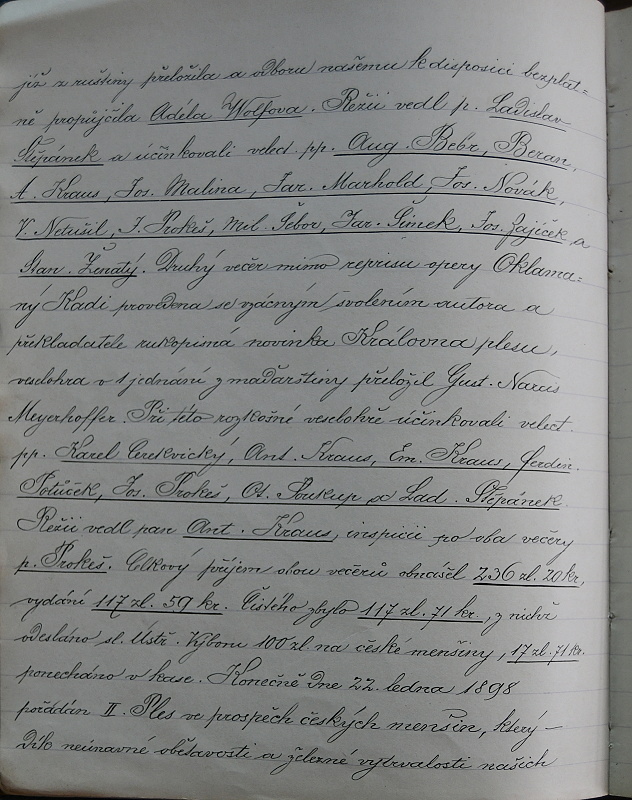 již z ruštiny přeložila a odboru našemu k disposici bezplat=
ně propůjčila Adéla Wolfova. Režii vedl p. Ladislav
Štěpánek a účinkovali velect. pp. Aug. Bebr, Beran,
A. Kraus, Jos. Malina, Jar. Marhold, Jos. Novák,
V. Netušil, J. Prokeš, Mil. Šebor, Jar. Šimek, Jos. Zajíček a
Stan. Ženatý. Druhý večer mimo reprisu opery Oklama=
ný Kadi provedena se vzácným svolením autora a
překladatele rukopisná novinka Královna plesu,
veselohra v 1 jednání z maďarštiny přeložil Gust. Narcis
Meyerhoffer. Při této rozkošné veselohře účinkovali velect.
pp. Karel Cerekvický, Ant. Kraus, Em. Kraus, Ferdin.
Potůček, Jos. Prokeš, Ot. Soukup a Lad. Štěpánek.
Režii vedl pan Ant. Kraus, inspicii po oba večery
p. Prokeš. Celkový příjem obou večerů obnášel 236 zl. 20 kr,
vydání 117 zl. 59 kr. Čistého zbylo 117 zl. 71 kr., z nichž
odesláno sl. Ústř. Výboru 100 zl na české menšiny, 17 zl. 71 kr.
ponecháno v kase. Konečně dne 22. ledna 1898
pořádán II. Ples ve prospěch českých menšin, který —
dílo neúnavné obětavosti a železné vytrvalosti našich